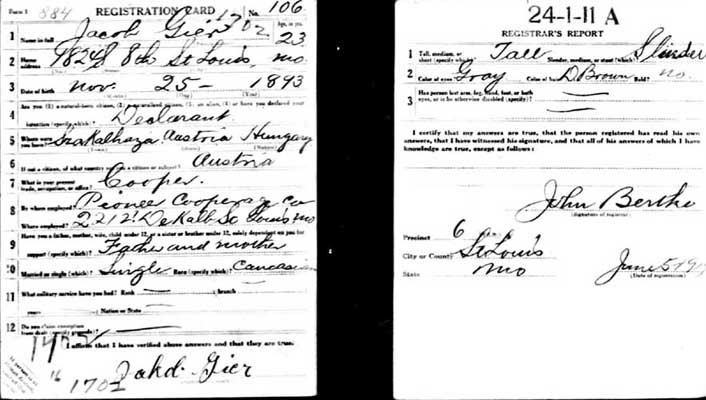 Form 1 884 REGISTRATION CARD No. 106
1 Name in full Jacob Gier 1702 Age, in yrs. 23
2 Home address 1824 S 8th St Louis, Mo.
3 Date of birth Nov. 25 — 1893
4 Are you (1) a natural-born citizen, (2) a naturalized citizen, (3) an alien, (4) or have you declared your intention (specify which)? Declarant
5 Where were you born? Austria Hungary
6 If not a citizen, of what country are you a citizen or subject? Austria
7 What is your present trade, occupation, or office? Cooper.
8 By whom employed? Pioneer Cooperage Co
Where employed? 2212 DeKalb St Louis Mo
9 Have you a father, mother, wife, child under 12, or a sister or brother under 12, solely dependent on you for support (specify which)? Father and mother
10 Married or single (which)? Single Race (specify which)? Caucasian
11 What military service have you had? Rank — ; branch —
years ; Nation or State —
12 Do you claim exemption from draft (specify grounds)? —
I affirm that I have verified above answers and that they are true.
16 1702 Jakob Gier
24-1-11 A
REGISTRAR'S REPORT
1 Tall, medium, or short (specify which)? Tall Slender, medium, or stout (which)? Slinder
2 Color of eyes? Gray Color of hair? D Brown Bald? No.
3 Has person lost arm, leg, hand, foot, or both eyes, or is he otherwise disabled (specify)? —
I certify that my answers are true, that the person registered has read his own
answers, that I have witnessed his signature, and that all of his answers of which I have
knowledge are true, except as follows:
John Berthe
(Signature of registrar)
Precinct 6
City or County St Louis
State Mo June 5-1917
(Date of registration)